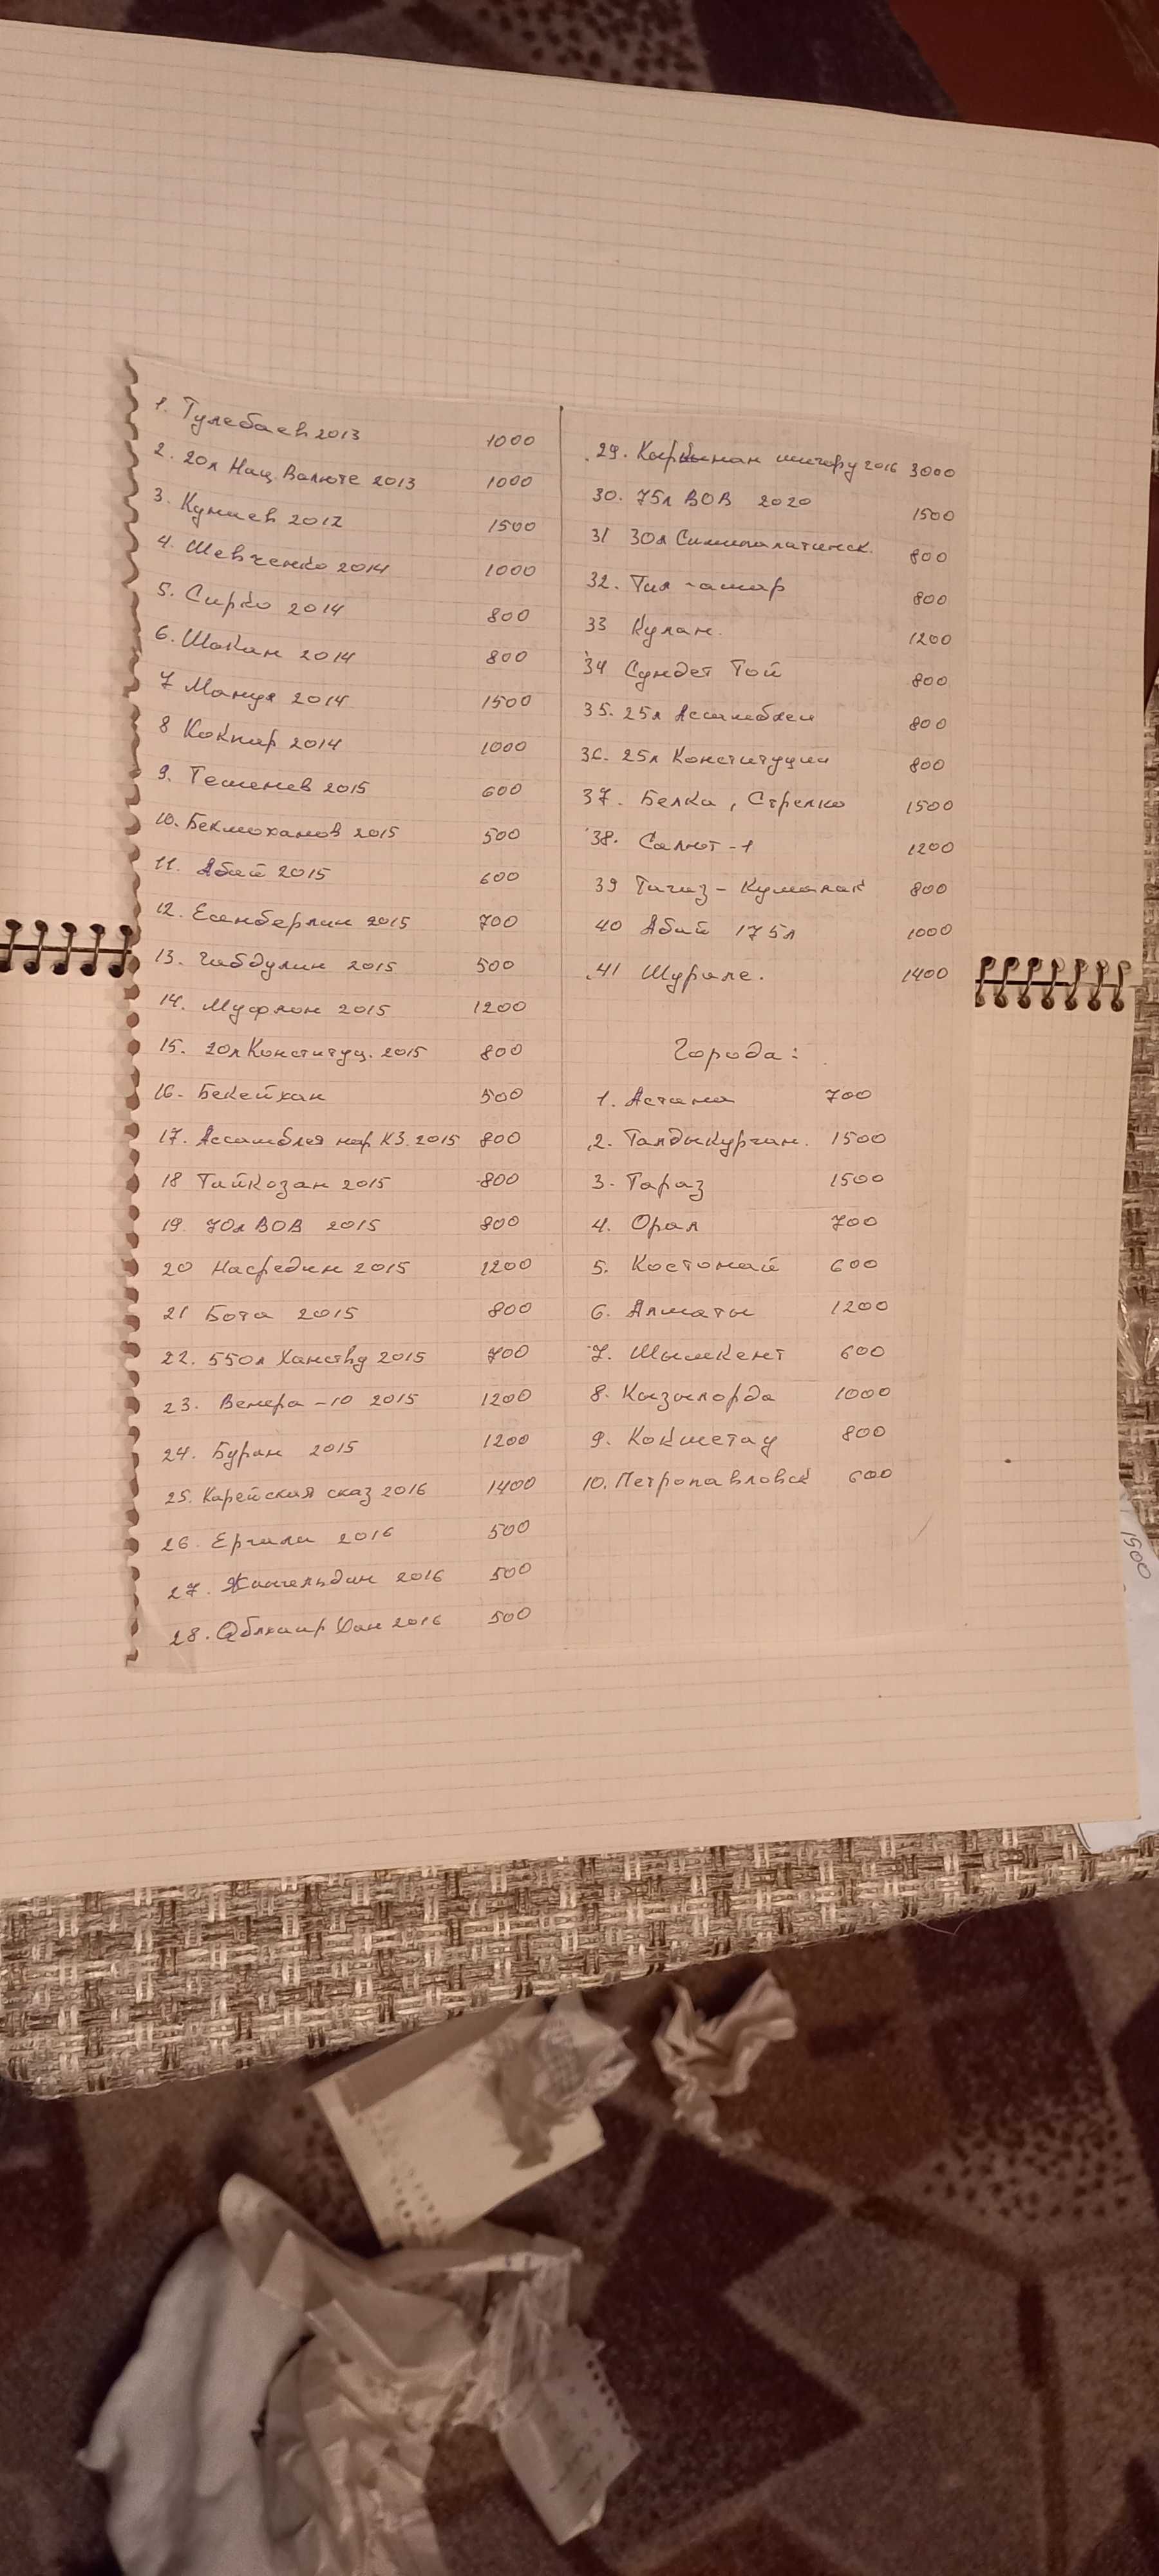 1. Тулебаев 2013 1000
2. 20л Нац. Валюте 2013 1000
3. Кунаев 2012 1500
4. Шевченко 2014 1000
5. Сирко 2014 800
6. Шокан 2014 800
7 Манул 2014 1500
8 Кокпар 2014 1000
9. Ташенев 2015 600
10. Бекмаханов 2015 500
11. Абай 2015 600
12. Есенберлин 2015 700
13. Габдулин 2015 500
14. Муфлон 2015 1200
15. 20л Конституц. 2015 800
16. Бекейхан 500
17. Ассамблея нар КЗ. 2015 800
18 Тайказан 2015 800
19. 70л ВОВ 2015 800
20 Насредин 2015 1200
21 Бота 2015 800
22. 550л Ханству 2015 700
23. Венера-10 2015 1200
24. Буран 2015 1200
25. Карейская сказ 2016 1400
26. Ергали 2016 500
27. Жангельдин 2016 500
28. Аблхаир Хан 2016 500
29. шыгару 2016 3000
30. 75л ВОВ 2020 1500
31 30л Симипалатинск. 800
32. Тил-ашар 800
33 Кулан. 1200
34 Сундет Той 800
35. 25л Ассамблеи 800
36. 25л Конституции 800
37. Белка, Стрелка 1500
38. Салют-1 1200
39 Тагыз-Кумалак 800
40 Абай 175л 1000
41 Шурале. 1400
Города:
1. Астана 700
2. Талдыкурган. 1500
3. Тараз 1500
4. Орал 700
5. Костонай 600
6. Алматы 1200
7. Шымкент 600
8. Кызылорда 1000
9. Кокшетау 800
10. Петропавловск 600
1500